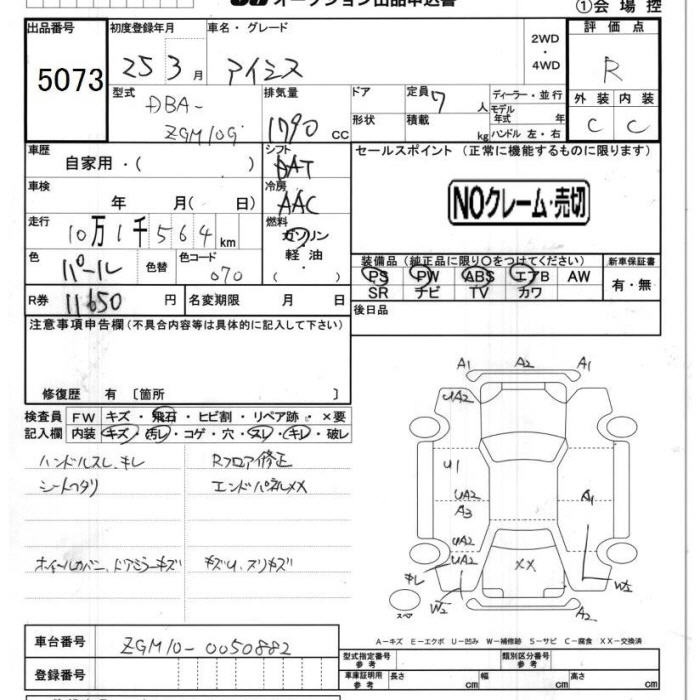 オークション出品申込書
①会場控
出品番号 5073
初度登録年月 25 3月
車名・グレード アイシス
2WD・4WD
評価点 R
型式 DBA-ZGM10G
排気量 1790 cc
ドア
形状
定員 7人
積載 kg
ディーラー・並行
モデル年式 年
ハンドル 左・右
外装 C
内装 C
車歴 自家用・( )
シフト DAT
セールスポイント (正常に機能するものに限ります)
NOクレーム・売切
車検 年 月( 日)
冷房 AAC
走行 10万1千564km
燃料 ガソリン 軽油・( )
色 パール
色替
色コード 070
装備品(純正品に限り○をつけてください)
PS PW ABS エアB AW
SR ナビ TV カワ
新車保証書 有・無
R券 11650円
名変期限 月 日
後日品
注意事項申告欄(不具合内容等は具体的に記入して下さい)
修復歴 有〔箇所 〕
検査員記入欄
FW キズ・飛石・ヒビ割・リペア跡・×要
内装 キズ・汚レ・コゲ・穴・スレ・キレ・破レ
ハンドルスレ、キレ Rフロア修正
シートヘタリ エンドパネルXX
ホイールカバー、ドアミラーキズ キズU、スリキズ
A1 A2 A1
UA2
U1
UA2
A3
A1
UA2
UA2
キレ
W2
XX
W2
A2
スペア
A−キズ E−エクボ U−凹み W−補修跡 S−サビ C−腐食 XX−交換済
車台番号 ZGM10-0050882
登録番号
型式指定番号 参考
類別区分番号 参考
車庫証明用 参考 長さ cm 幅 cm 高さ cm